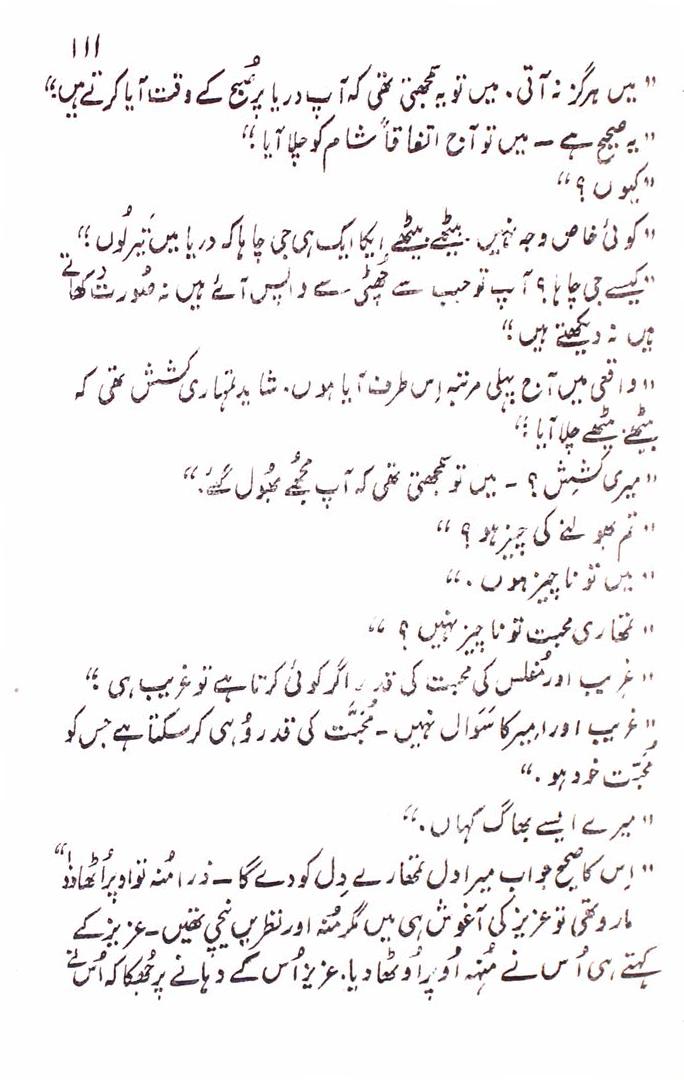 ۱۱۱
" میں ہرگز نہ آتی . میں تو یہ سمجھتی تھی کہ آپ دریا پر صُبح کے وقت آیا کرتے ہیں ."
" یہ صحیح ہے — میں تو آج اتفاقاً شام کو چلا آیا ."
" کیوں ؟ "
" کوئی خاص وجہ نہیں . بیٹھے بیٹھے ایکا ایک ہی جی چاہا کہ دریا میں تَیر لُوں ."
" کیسے جی چاہا ؟ آپ تو جب سے چُھٹی سے واپس آئے ہیں نہ صُورت دکھاتے
ہیں نہ دیکھتے ہیں ."
" واقعی میں آج پہلی مرتبہ اِس طرف آیا ہوں . شاید تمہاری کشش تھی کہ
بیٹھے بیٹھے چلا آیا ."
" میری کشِش ؟ - میں تو سمجھتی تھی کہ آپ مجُھے بُھول گئے . "
" تم بھولنے کی چیز ہو ؟ "
" میں تو ناچیز ہوں . "
" تمھاری محبت تو ناچیز نہیں ؟ "
" غریب اور مُفلس کی محبت کی قدر اگر کوئی کرتا ہے تو غریب ہی ."
" غریب اور امیر کا سَوال نہیں - مُحبَّت کی قدر وُہی کر سکتا ہے جس کو
مُحبّت خود ہو . "
" میرے ایسے بھاگ کہاں . "
" اِس کا صحیح جواب میرا دل تمھارے دِل کو دے گا — ذرا مُنہ تو اوپر اُٹھا دو !"
مارو تھی تو عزیز کی آغوش ہی میں مگر مُنہ اور نظریں نیچی تھیں - عزیز کے
کہتے ہی اُس نے مُنہہ اُوپر اُوٹھا دیا . عزیز اُس کے دہانے پر جُھکا کہ اُس نے